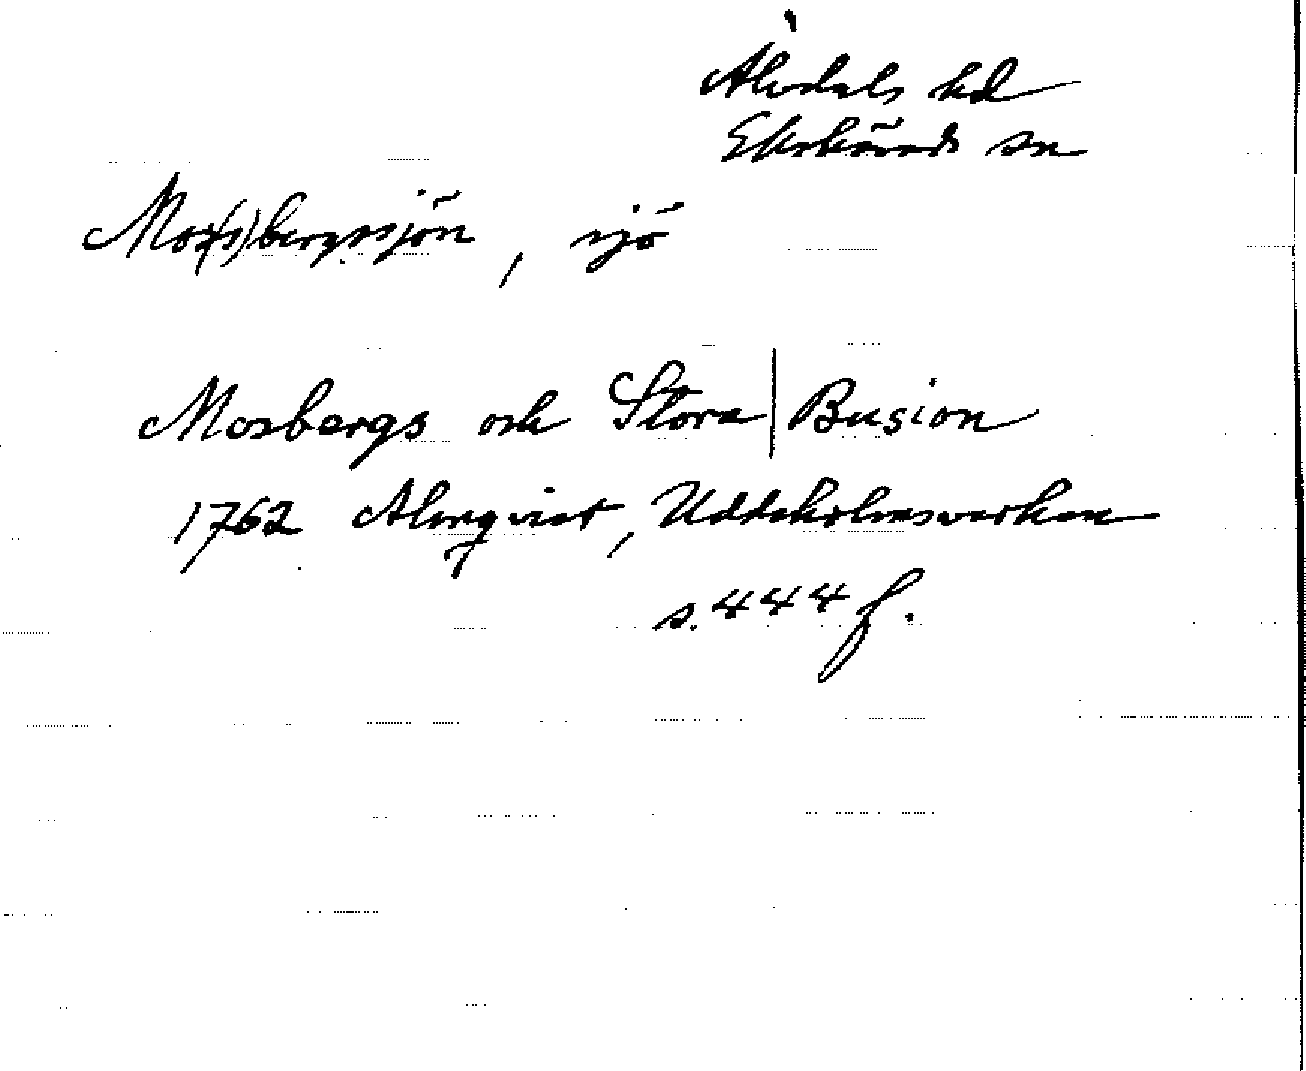 Älvdals hd
Ekshärads sn
Mos(s)bergssjön, sjö
Mosbergs och Stora | Busion
1762 Almqvist, Uddeholmsverken
s. 444 f.